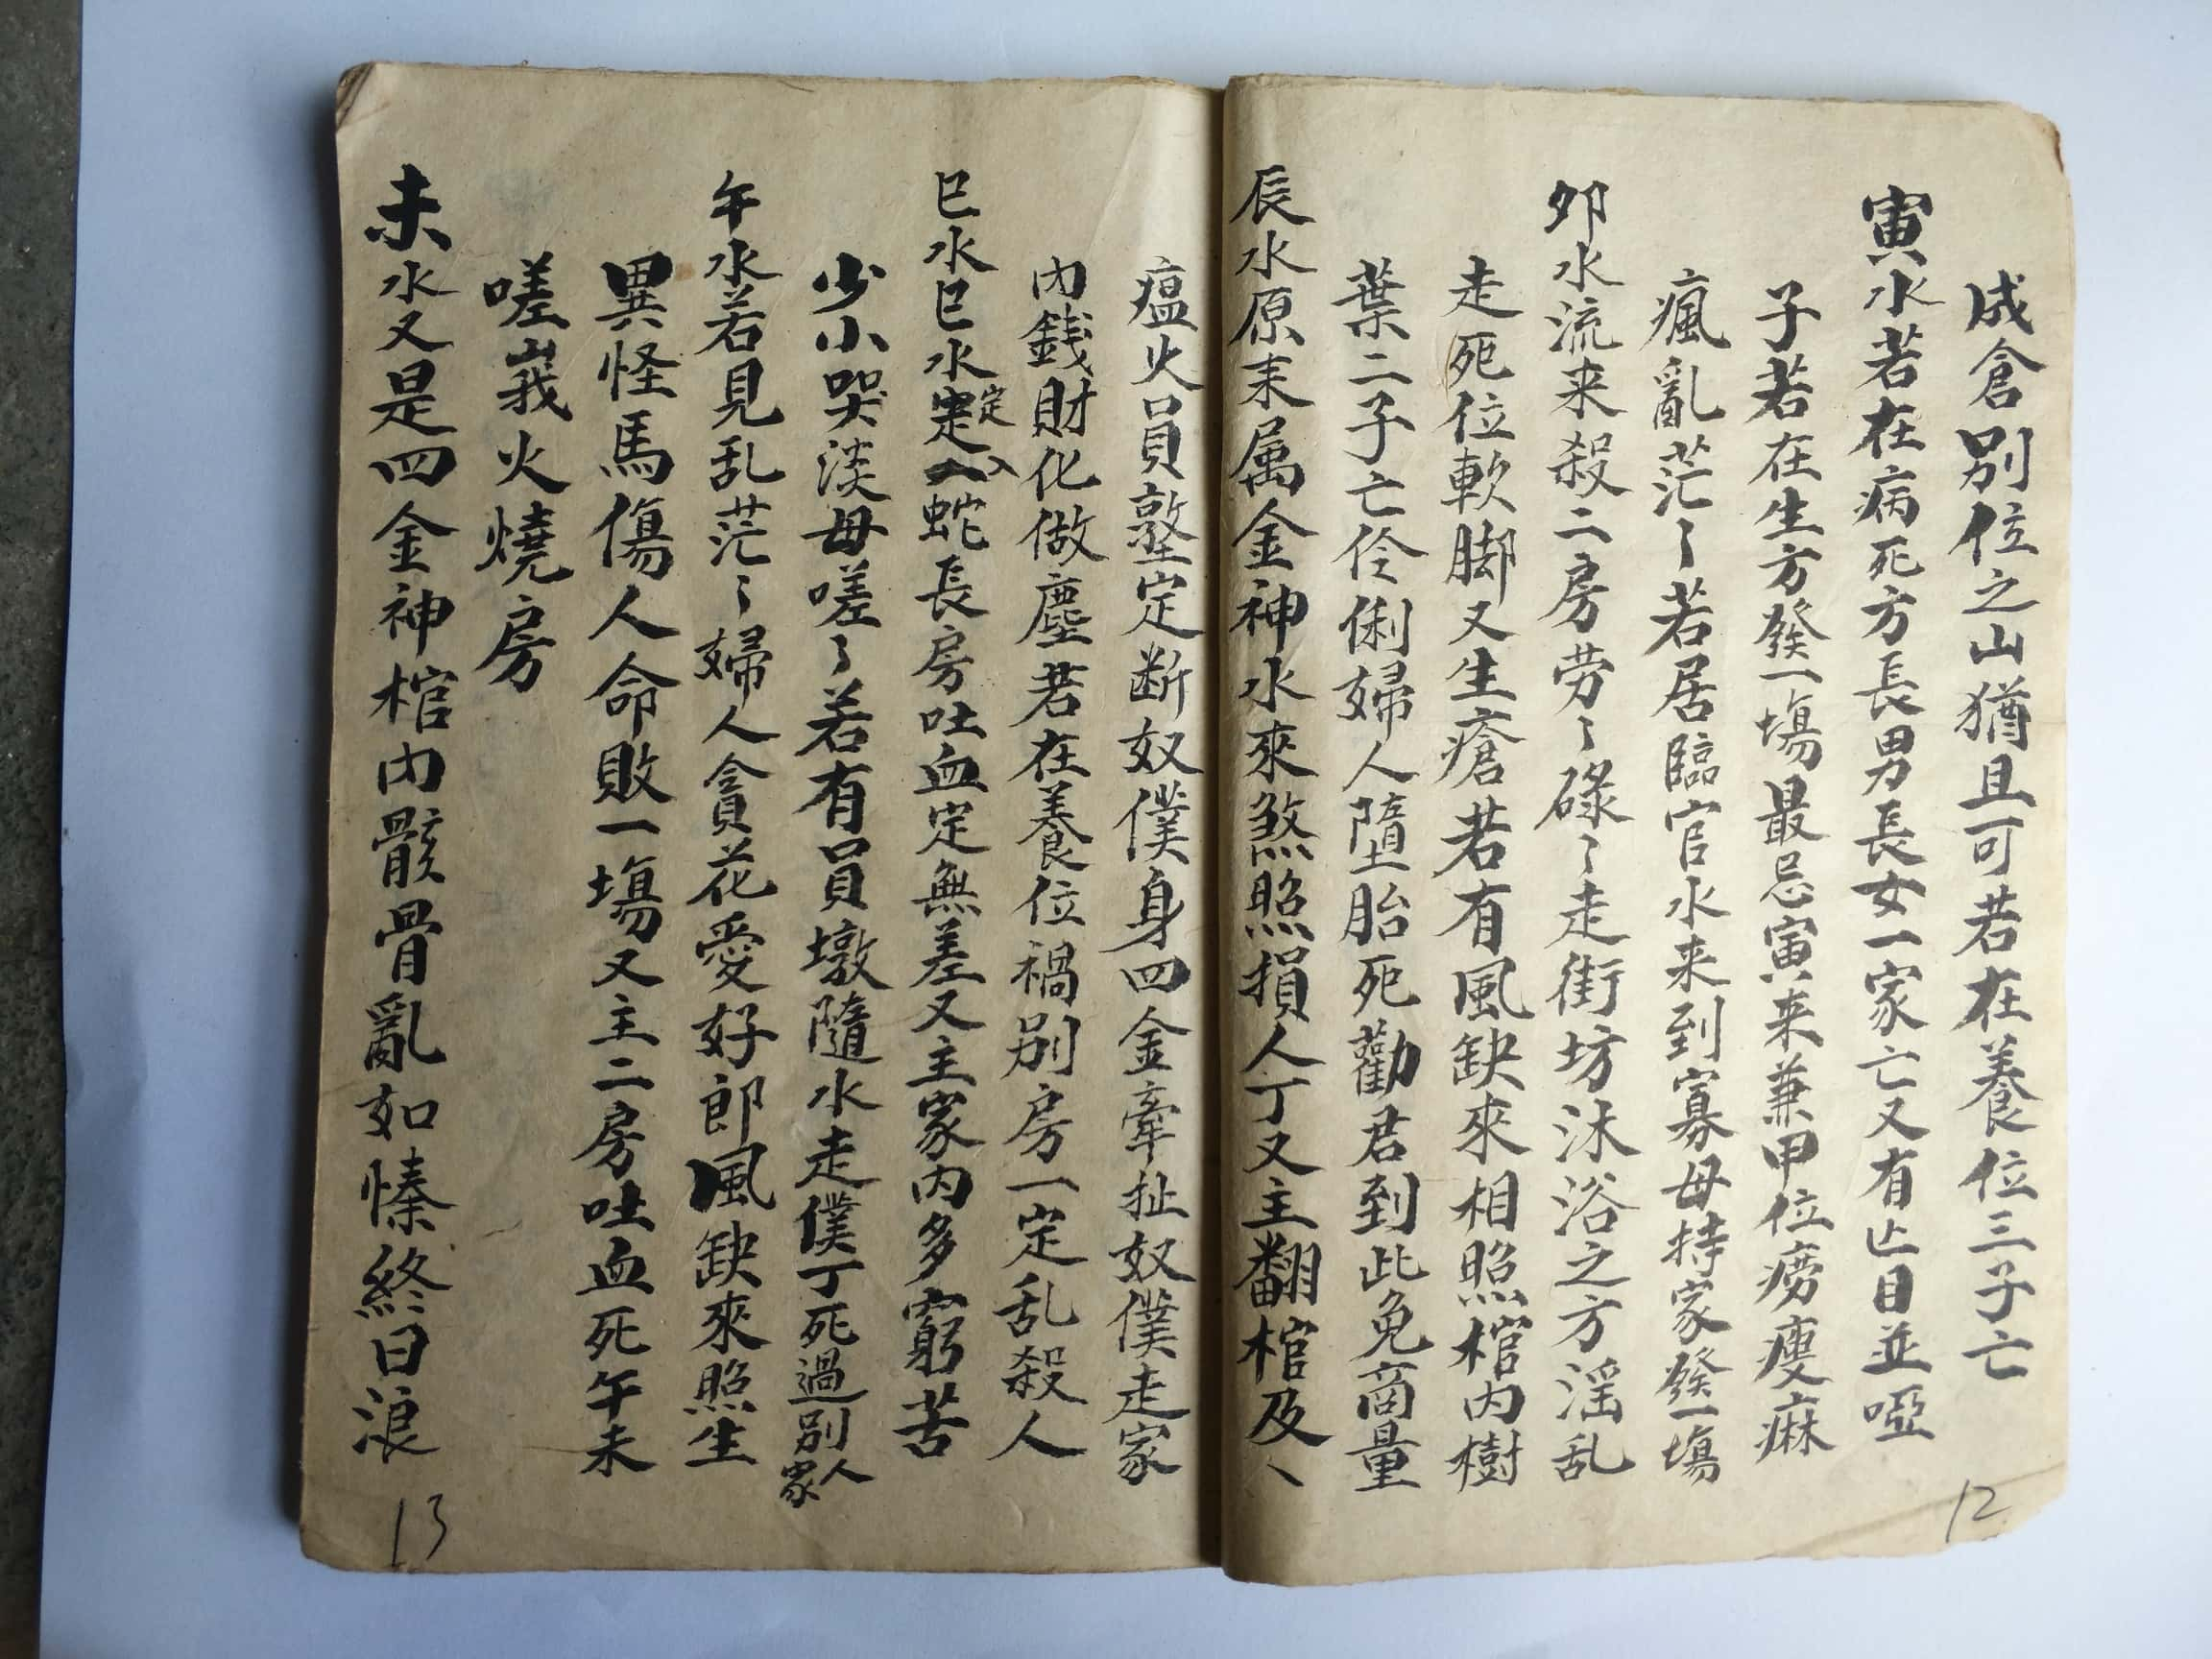 成倉別位之山猶且可若在養位三子亡
寅水若在病死方長男長女一家亡又有正目並啞
子若在生方發一塲最忌寅来兼甲位癆瘦痳
瘋亂茫〻若居臨官水来到寡母持家發一塲
夘水流来殺二房劳〻碌〻走街坊沐浴之方淫乱
走死位軟脚又生瘡若有風缺來相照棺内樹
葉二子亡伶俐婦人墮胎死勸君到此免商量
辰水原来属金神水來煞照損人丁又主翻棺及丶
12
瘟火員墪定断奴僕身四金牽扯奴僕走家
内錢財化做塵若在養位禍别房一定乱殺人
巳水巳水定入蛇長房吐血定無差又主家内多窮苦
少小哭淡母嗟〻若有員墩隨水走僕丁死過别人家
午水若見乱茫〻婦人貪花愛好郎風缺來照生
異怪馬傷人命敗一塲又主二房吐血死午未
嗟峩火燒房
未水又是四金神棺内骸骨亂如愫終日浪
13